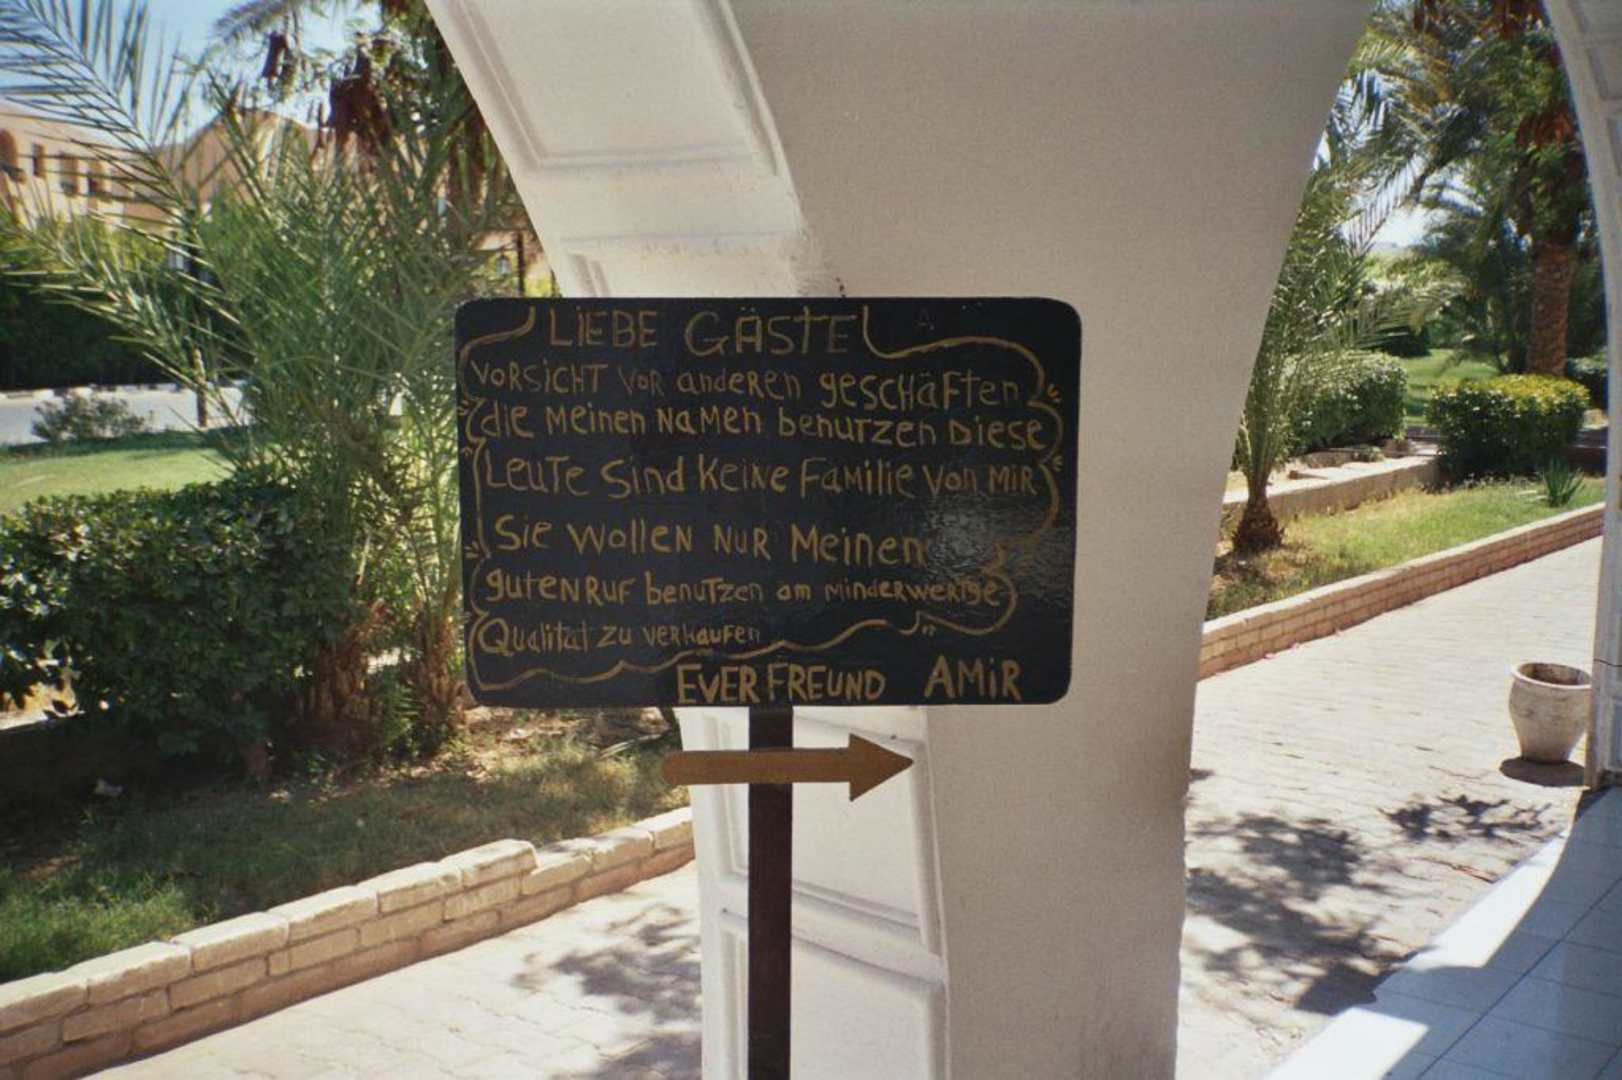 LiEBE GÄSTE
VORSICHT VOR anderen gescHäFten
die Meinen NaMen benutzen Diese
LeuTe Sind Keine Familie Von MiR
Sie Wollen NUR Meinen
gutenRuf benuTzen am minderwertige
Qualitat zu verkaufen
EVER FREUND AMiR